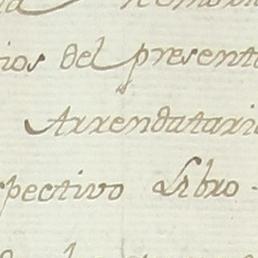 ios del present
Arrendatari
spectivo Libro